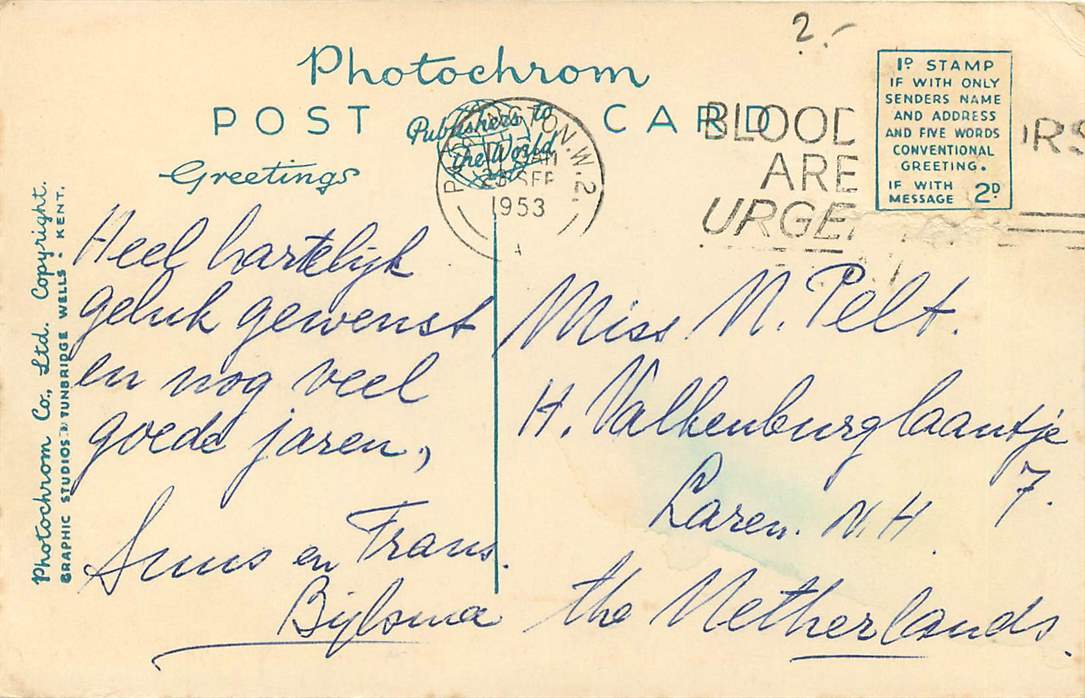 2.-
Photochrom
POST CARD
Publishers to
the World
Greetings
1D STAMP
IF WITH ONLY
SENDERS NAME
AND ADDRESS
AND FIVE WORDS
CONVENTIONAL
GREETING.
IF WITH
MESSAGE 2D
GTON.W.2.
AM
SEP
1953
BLOOD ORS
ARE
URGE
Photochrom Co., Ltd. Copyright.
GRAPHIC STUDIOS TUNBRIDGE WELLS - KENT.
Heel hartelijk
geluk gewenst
en nog veel
goede jaren,
en Frans.
Bijlsma
Miss N. Pelt.
H. Valkenburglaantje
7.
Laren. N.H.
the Netherlands.